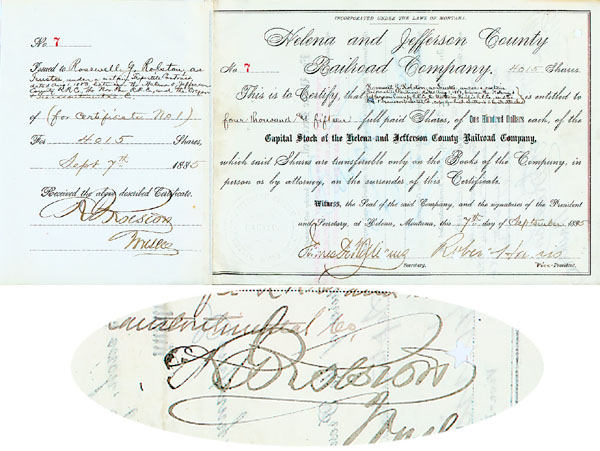 No. 7
Issued to Rosewell G. Rolston, as
Trustee under a certain Tripartite Contract,
dated Aug 1883 between the Helena & Jefferson
County R.R.C., the Nor. Pac R.R. Co., and the Oregon
Transcontinental C.
of (for Certificate No. 1)
For 4015 Shares,
Sept 7th 1885
Received the above described Certificate.
R G Rolston
Trustee
INCORPORATED UNDER THE LAWS OF MONTANA.
Helena and Jefferson County
No. 7 Railroad Company. 4015 Shares
This is to Certify, that Rosewell G. Rolston, as Trustee under a certain
is entitled to
four thousand and fifteen full paid Shares, of One Hundred Dollars each, of the
Capital Stock of the Helena and Jefferson County Railroad Company,
which said Shares are transferable only on the Books of the Company, in
person or by attorney, on the surrender of this Certificate.
Witness, the Seal of the said Company, and the signatures of the President
and Secretary, at Helena, Montana, this 7th day of September 1885
Secretary. Vice-President.
Transcontinental Co,
R G Rolston
Trus